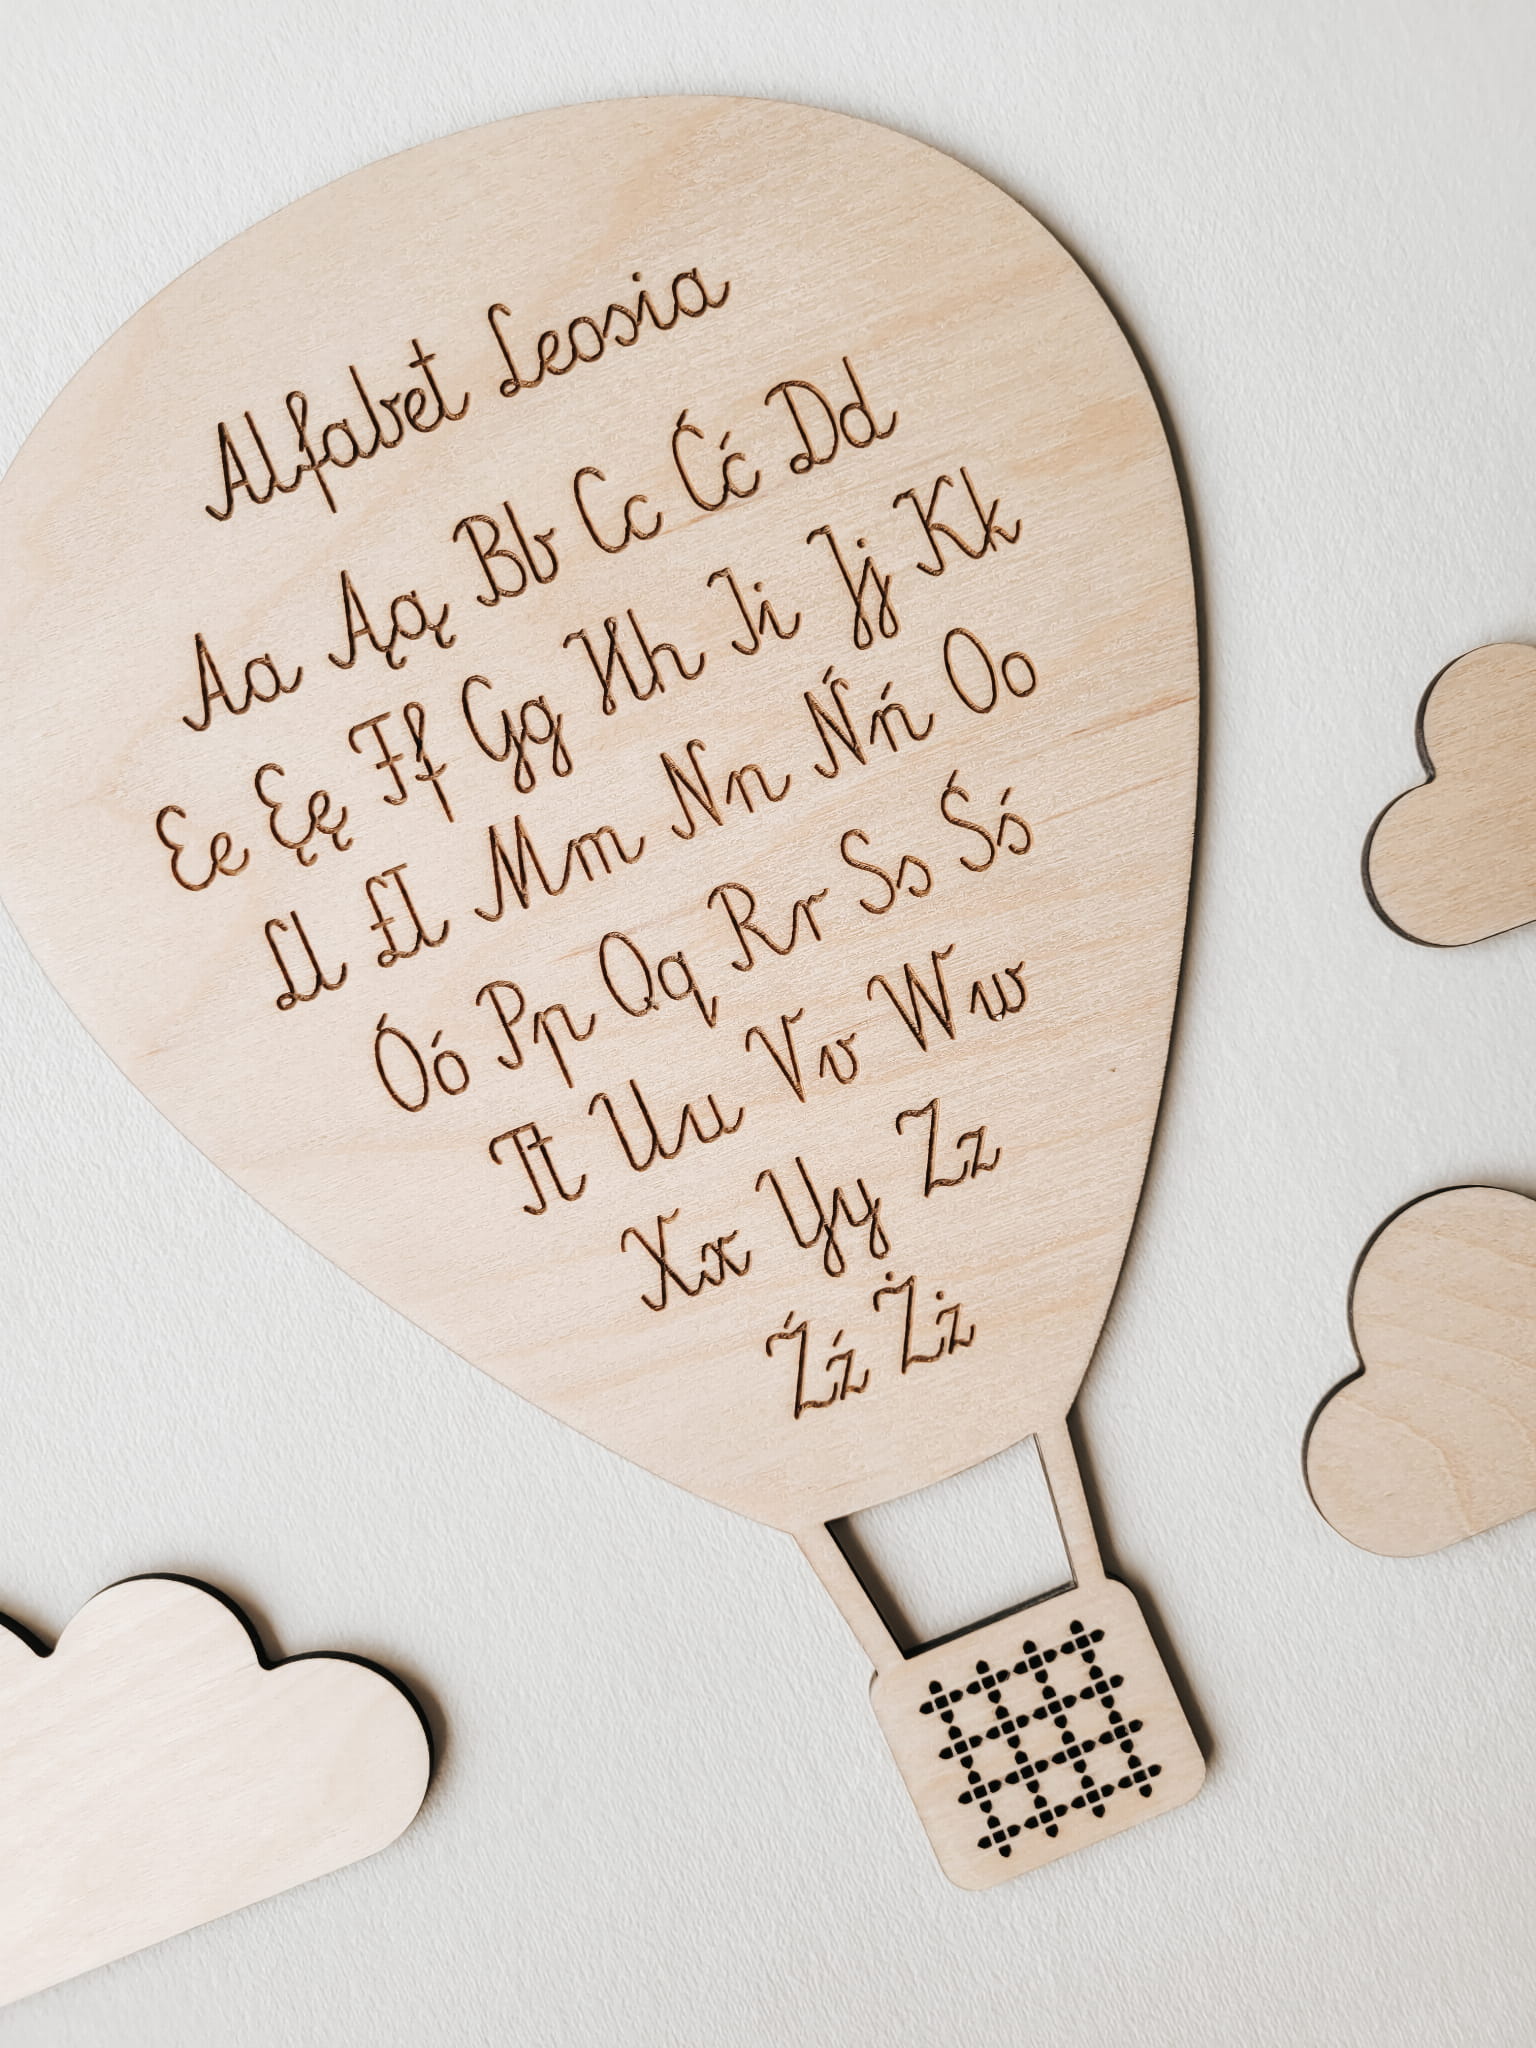 Alfabet Leosia
Aa Ąą Bb Cc Ćć Dd
Ee Ęę Ff Gg Hh Ii Jj Kk
Ll Łł Mm Nn Ńń Oo
Óó Pp Qq Rr Ss Śś
Tt Uu Vv Ww
Xx Yy Zz
Źź Żż